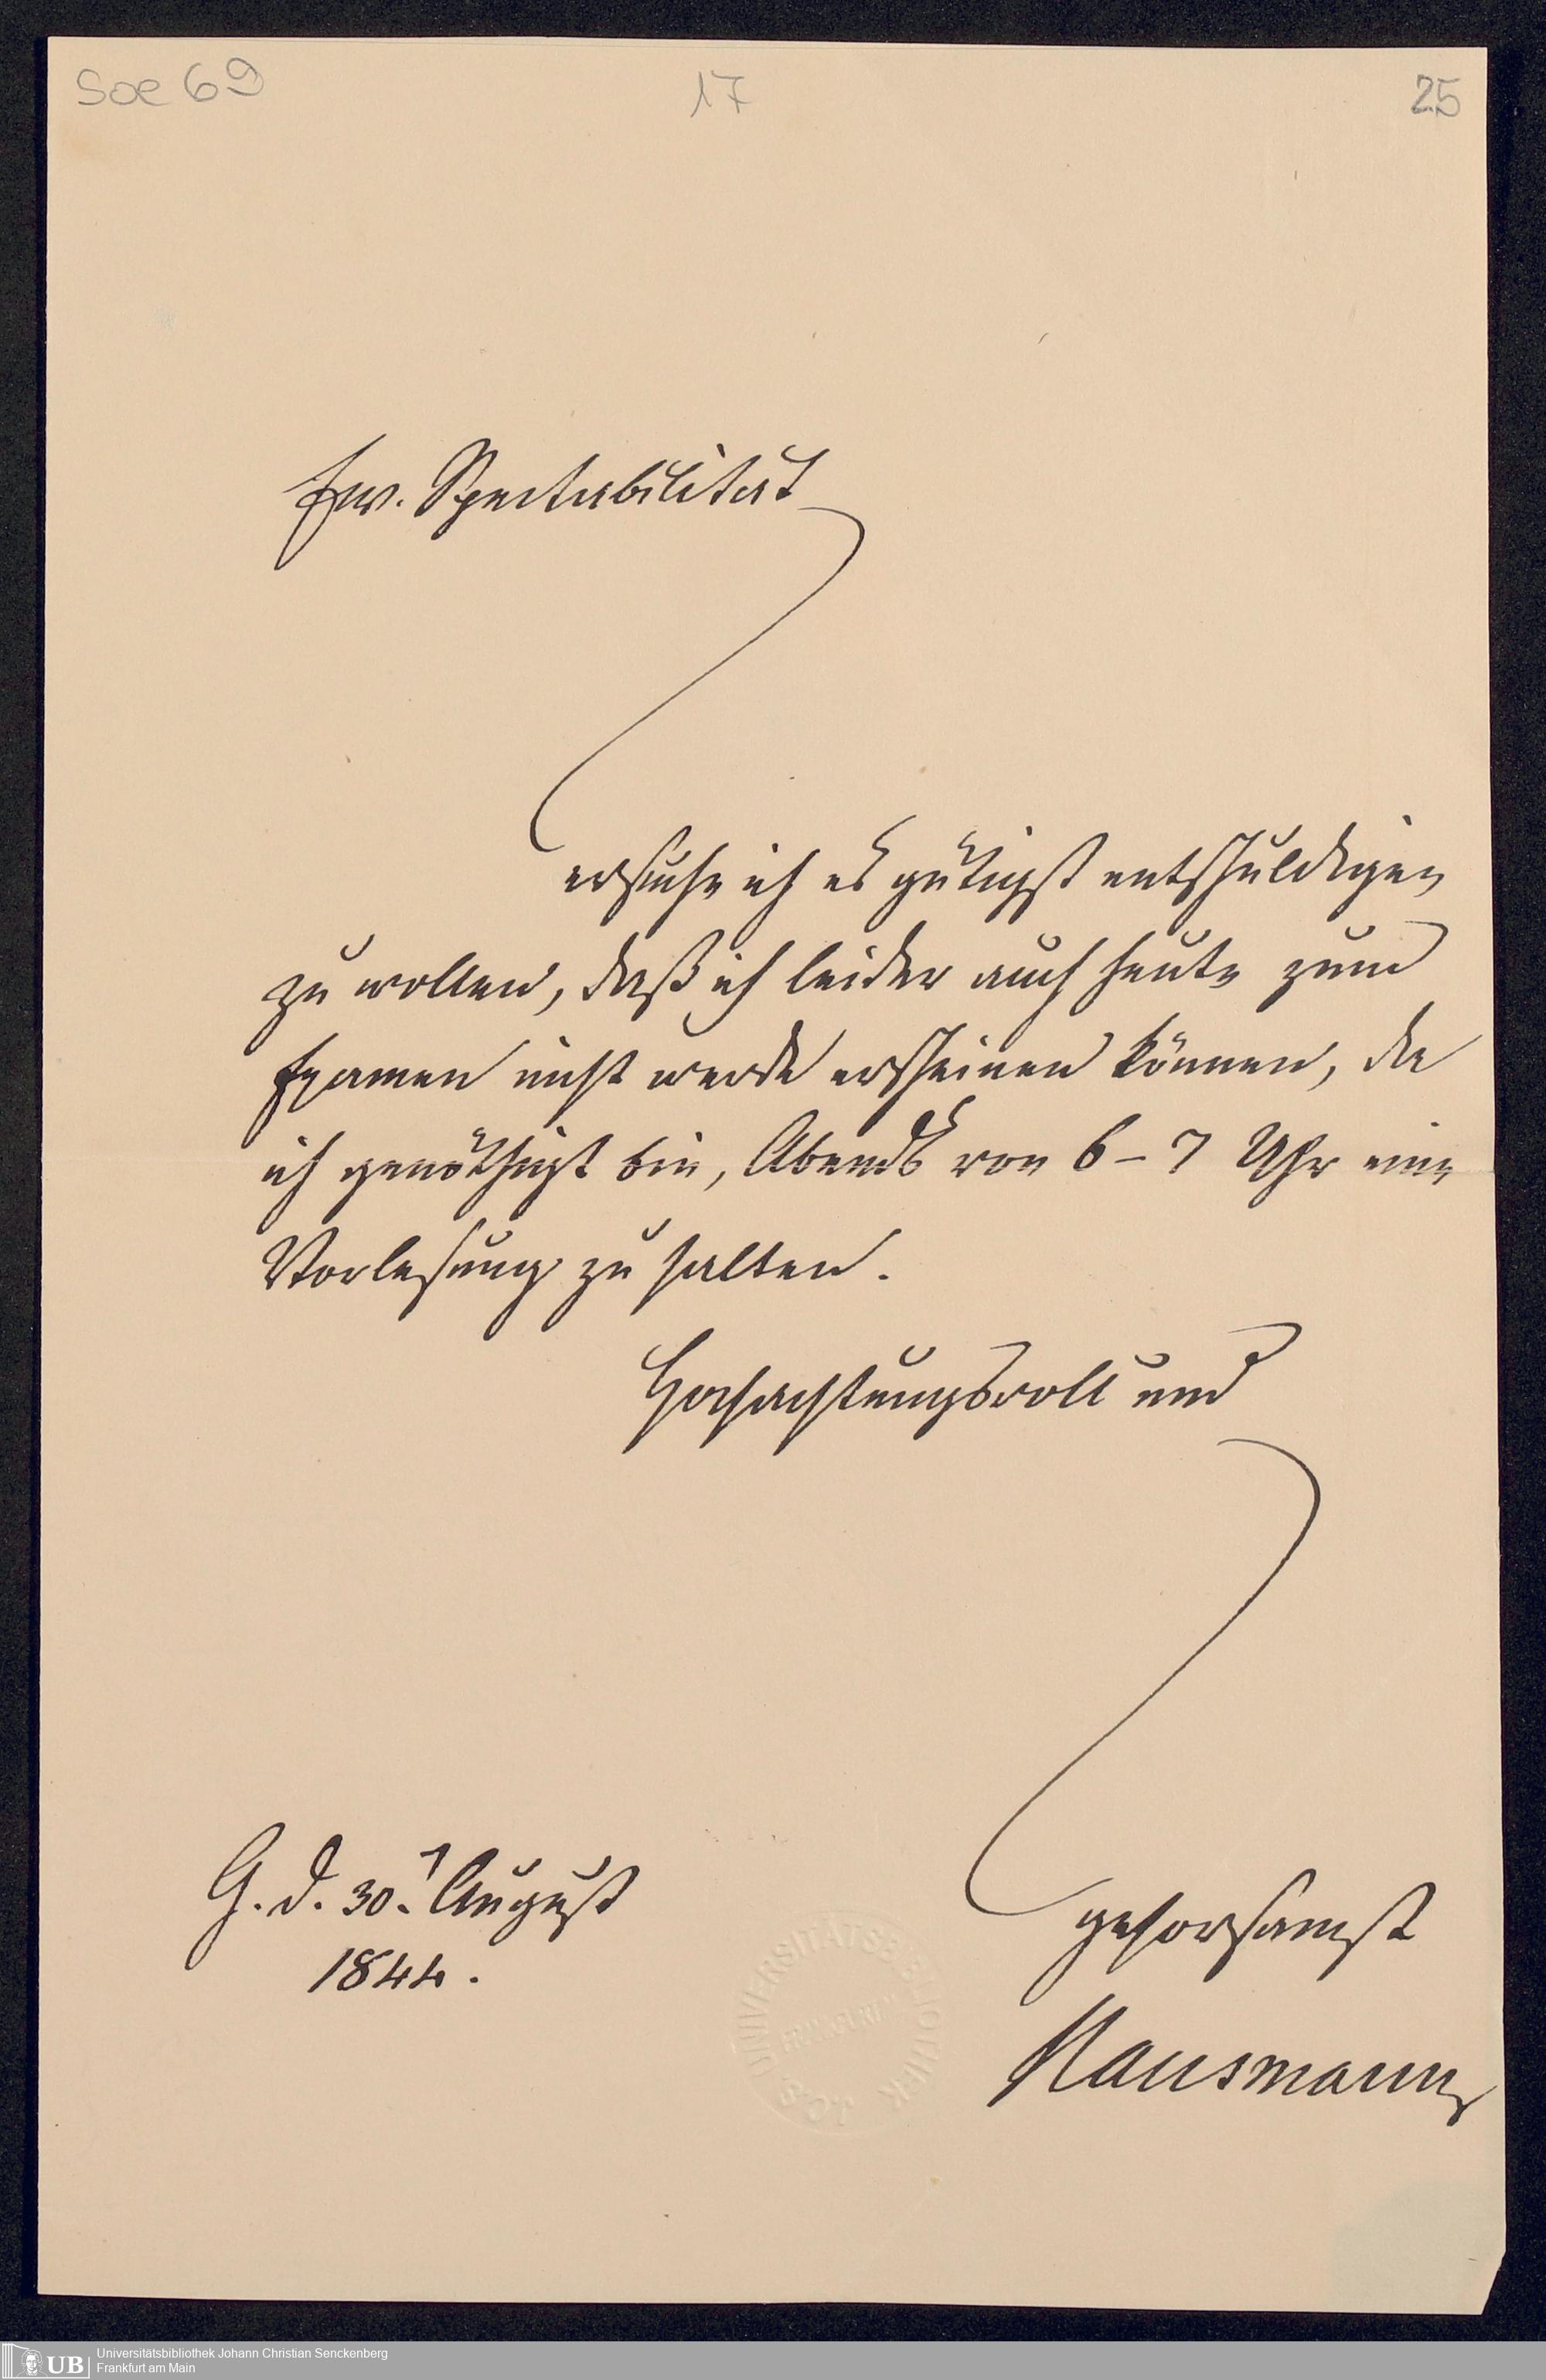 Soe 69 17 25
Ew. Spectabilität
ersuche ich es gütigst entschuldigen
zu wollen, daß ich leider auch heute zum
Examen nicht werde erscheinen können, da
ich genöthigt bin, Abends von 6 – 7 Uhr eine
Vorlesung zu halten.
Hochachtungsvoll und
G. d. 30. August
1844.
gehorsamst
Hausmann
UNIVERSITÄTSBIBLIOTHEK
UB
Universitätsbibliothek Johann Christian Senckenberg
Frankfurt am Main